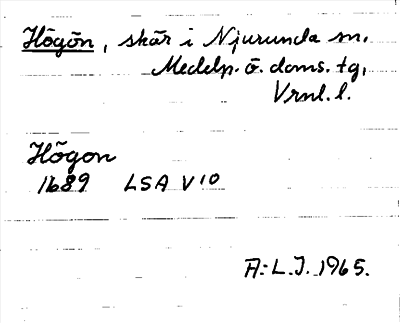 Högön, skär i Njurunda sn.
Medelp. ö. doms. tg,
Vrnl. l.
Högon
1689 LSA V 10
A:L.J. 1965.